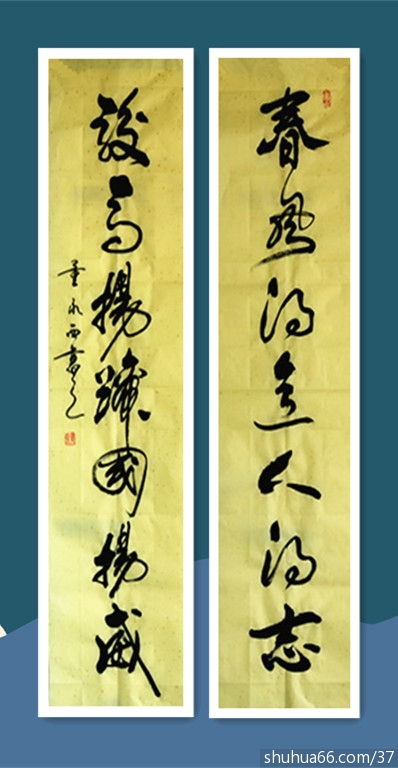 春風得意人得志
駿馬揚蹄國揚威
永西書
shuhua66.com/37